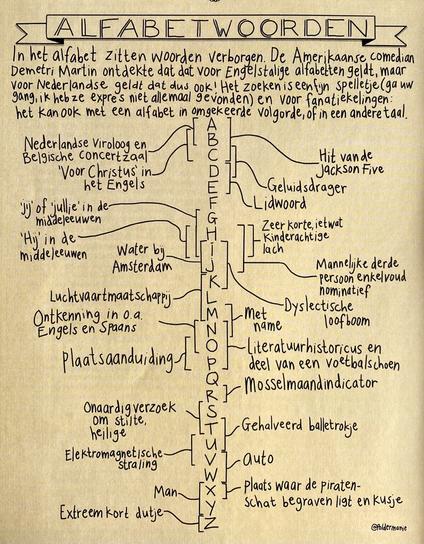 ALFABETWOORDEN
In het alfabet zitten woorden verborgen. De Amerikaanse comedian
Demetri Martin ontdekte dat dat voor Engelstalige alfabetten geldt, maar
voor Nederlandse geldt dat dus ook! Het zoeken is een fijn spelletje (ga uw
gang, ik heb ze expres niet allemaal gevonden) en voor fanatiekelingen:
het kan ook met een alfabet in omgekeerde volgorde, of in een andere taal.
A
B
C
D
E
F
G
H
I
J
K
L
M
N
O
P
Q
R
S
T
U
V
W
X
Y
Z
Nederlandse Viroloog en
Belgische Concertzaal
'Voor Christus' in
het Engels
'jij' of 'jullie' in de
middeleeuwen
'Hij' in de
middeleeuwen
Water bij
Amsterdam
Luchtvaartmaatschappij
Ontkenning in o.a.
Engels en Spaans
Plaatsaanduiding
Onaardig verzoek
om stilte,
heilige
Elektromagnetische
straling
Man
Extreem kort dutje
Hit van de
Jackson Five
Geluidsdrager
Lidwoord
Zeer korte, ietwat
Kinderachtige
lach
Mannelijke derde
persoon enkelvoud
nominatief
Dyslectische
loofboom
Met
name
Literatuurhistoricus en
deel van een voetbalschoen
Mosselmaandindicator
Gehalveerd balletrokje
Auto
Plaats waar de piraten-
schat begraven ligt en kusje
@foldermanie